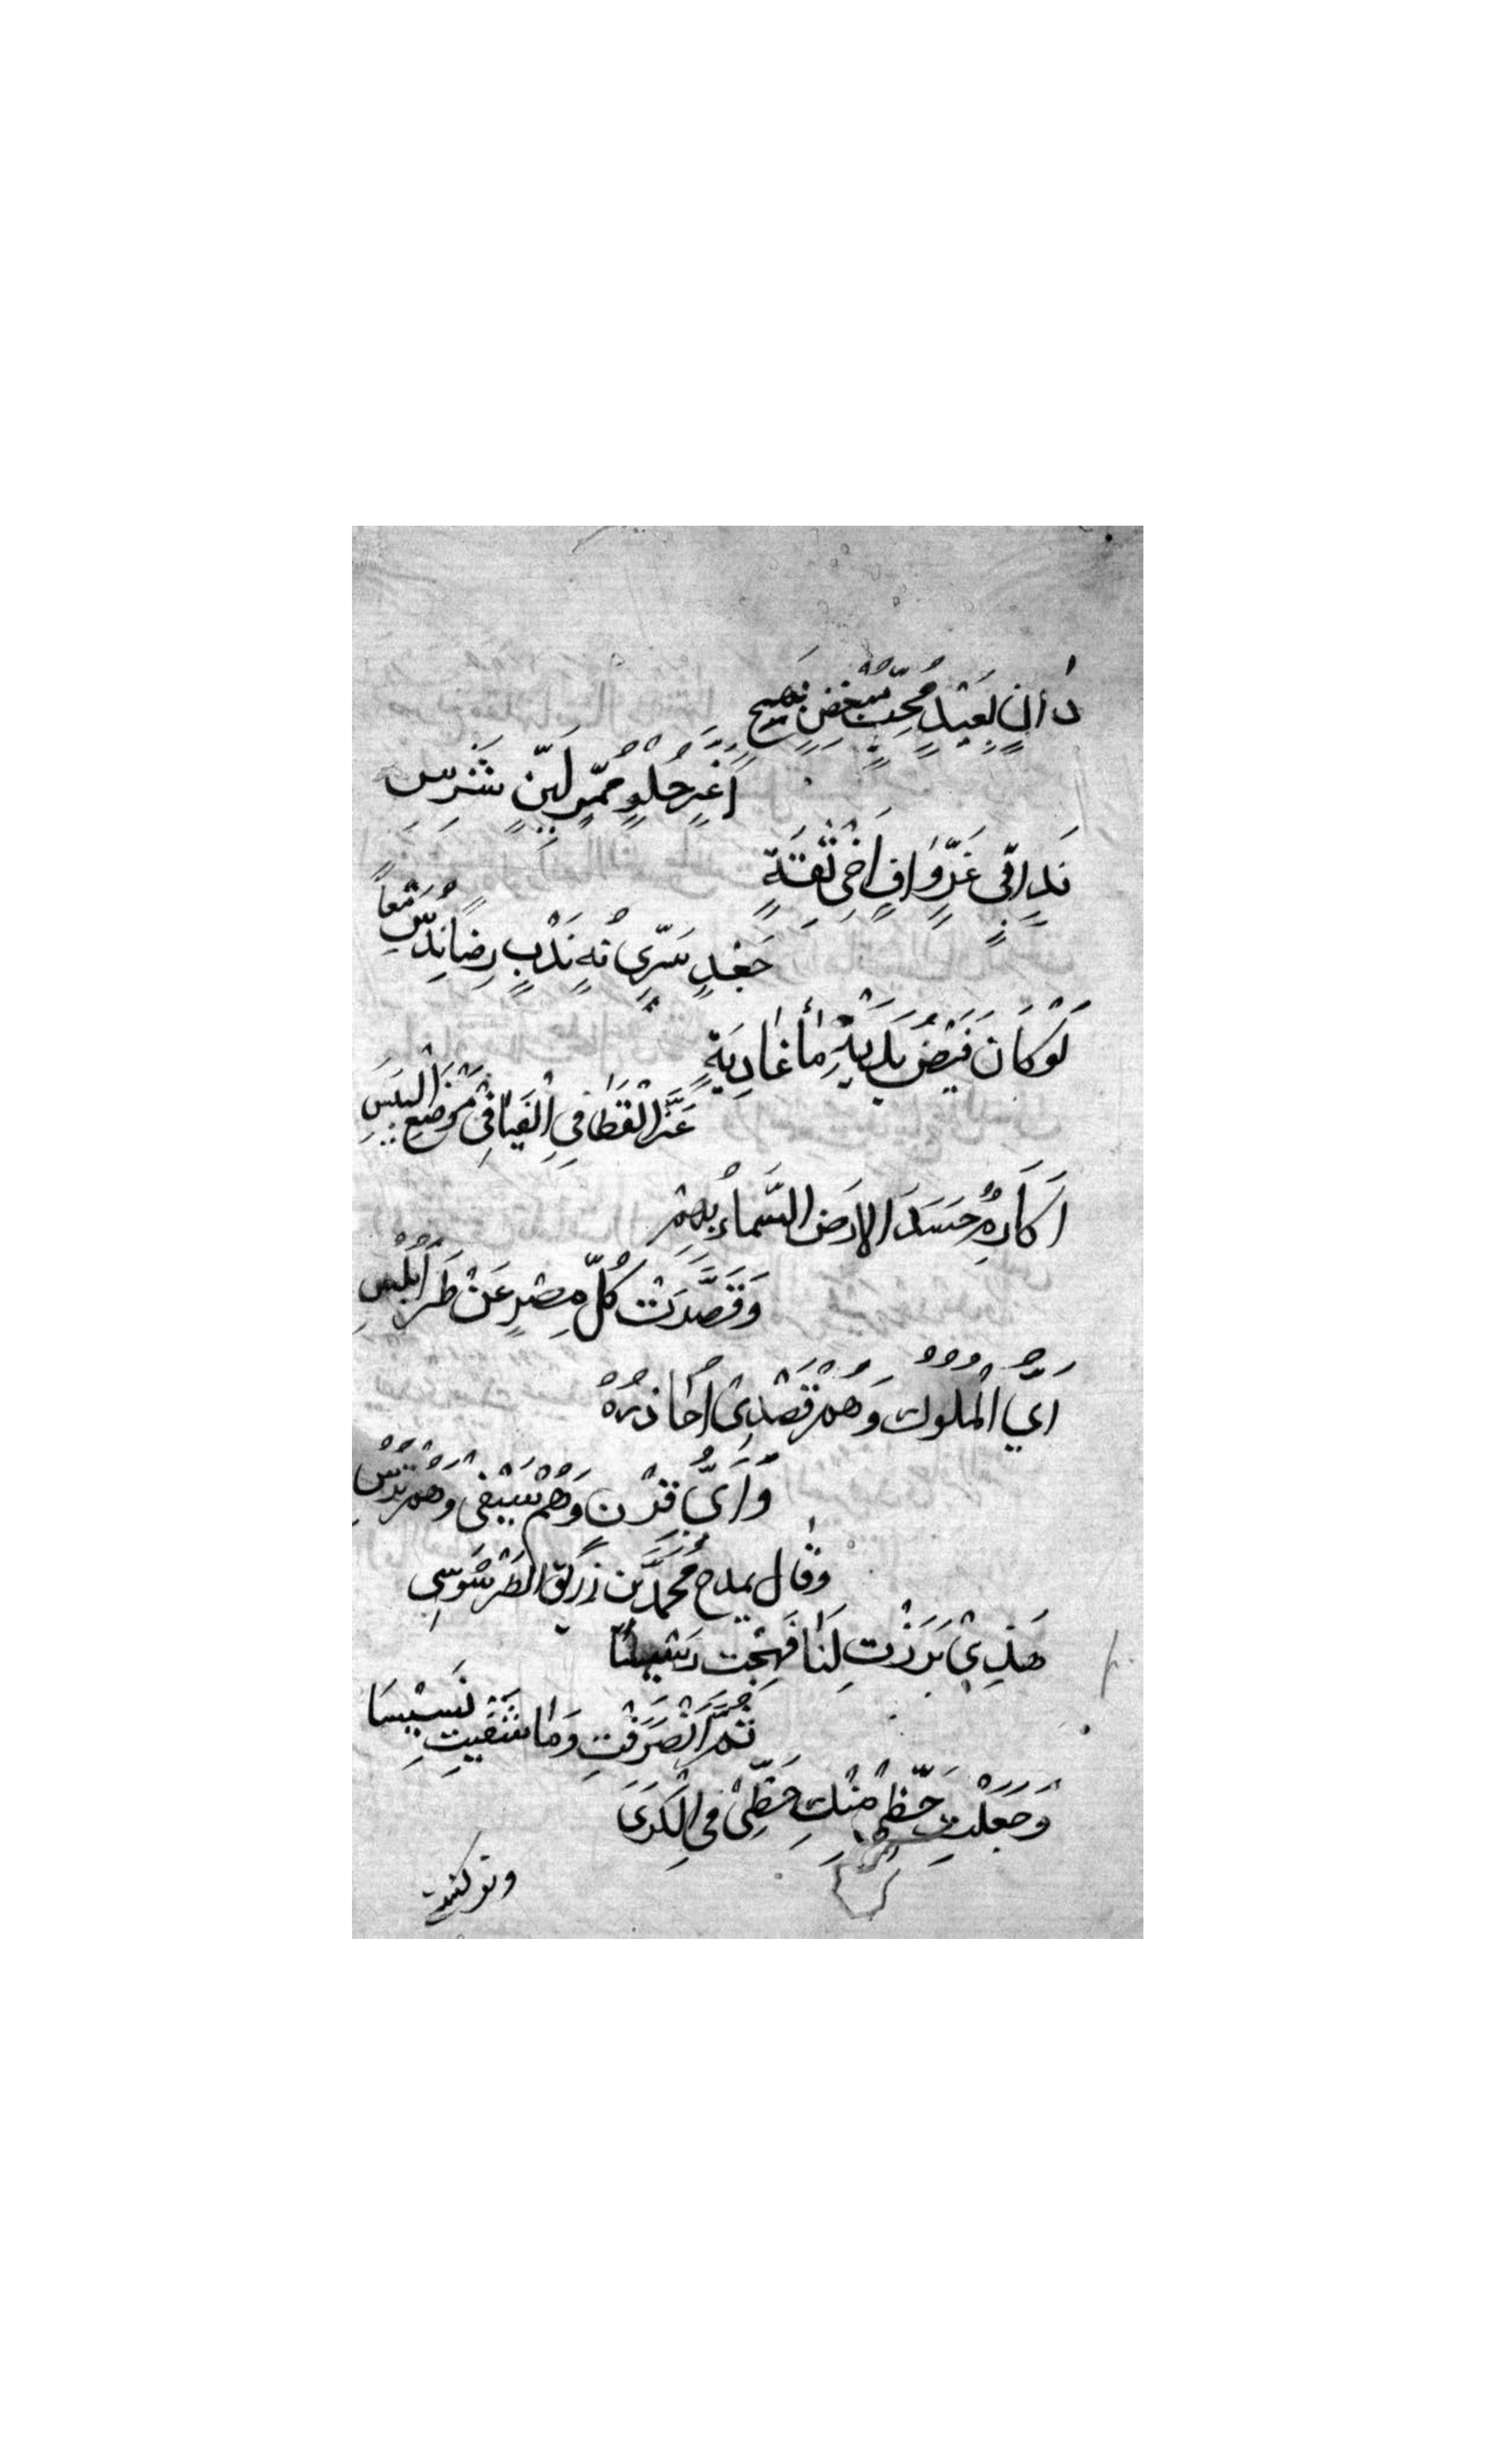 دَانٍ بَعِيْدٍ مُحِبٍّ مُبْغِضٍ بَهِجٍ
اَغَرَّ حُلْوٍ مُمِرٍّ لَيِّنٍ شَرِسِ
نَدٍ اَبِيٍّ غَرٍّ وَافٍ اَخِي ثِقَةٍ
جَعْدٍ سَرِيٍّ نُهٍ نَدْبٍ رِضًا نَدُسِ
لَوْ كَانَ فَيْضُ يَدَيْهِ مَاْ غَادِيَةٍ
عَزَّ الْقَطَا فِي الْفَيَافِي مَوْضِعُ الْيَبَسِ
اَكَارِمٌ حَسَدَ الاَرْضَ السَّمَاءُ بِهِمْ
وَقَصَّرَتْ كُلُّ مِصْرٍ عَنْ طَرَابُلُسِ
اَيُّ الْمُلُوكِ وَهُمْ قَصْدِيْ اُحَاذِرُهُ
وَاَيُّ قِرْنٍ وَهُمْ سَيْفِيْ وَهُمْ تُرُسِيْ
وقال يمدح مُحَمَّدَ بن زريق الطَرْسُوسِي
هَذِيْ بَرَزْتِ لَنَا فَهِجْتِ رَسِيْسَا
ثُمَّ انْصَرَفْتِ وَمَا شَفَيْتِ نَسِيْسَا
وَجَعَلْتِ حَظِّيْ مِنْكِ حَظِّيْ فِي الْكَرَى
وتركتني